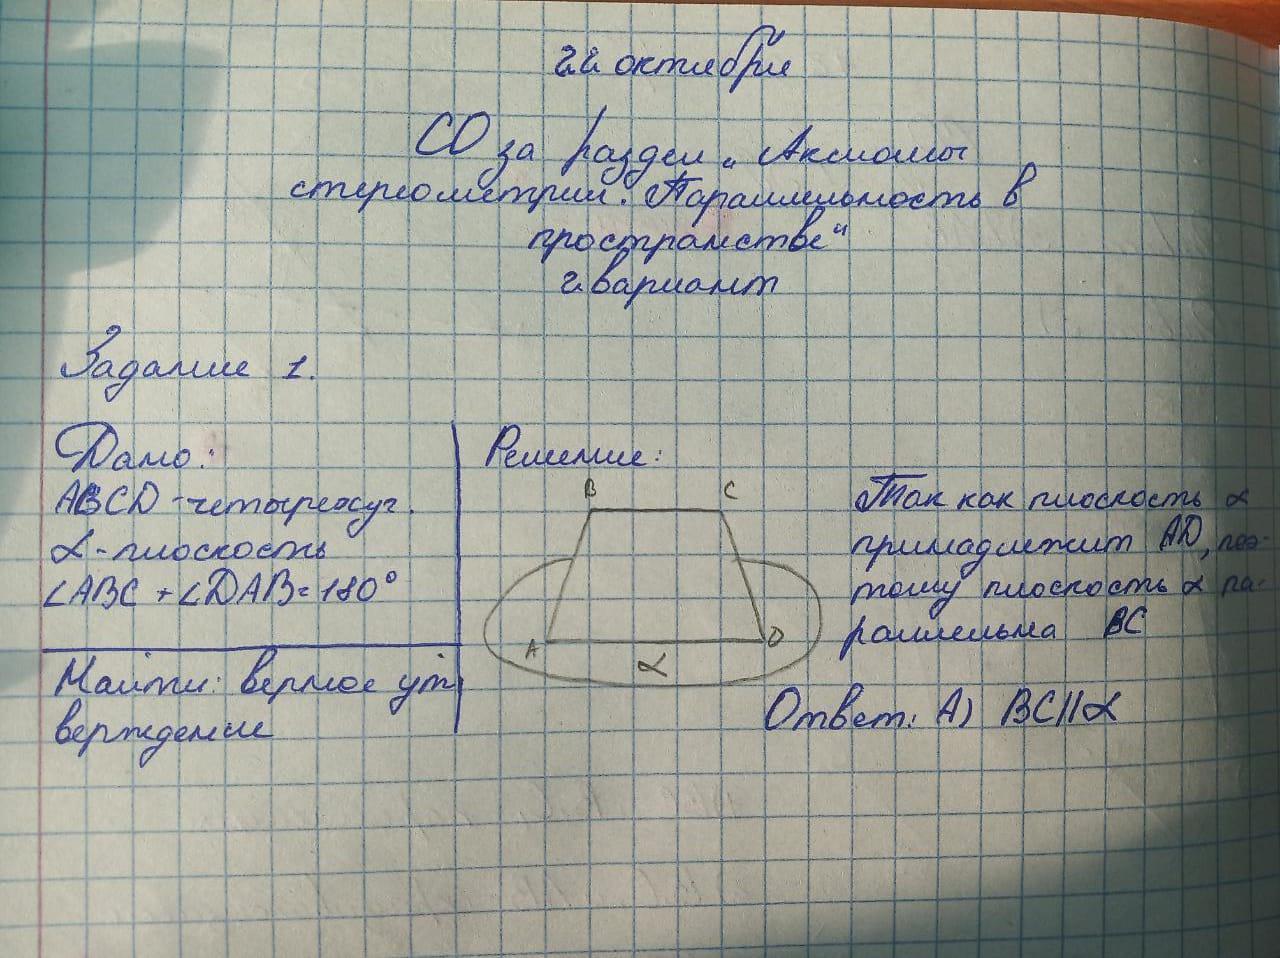 22 октября
СО за раздел „Аксиомы
стереометрии. Параллельность в
пространстве"
2 вариант
Задание 1.
Дано:
ABCD - четырехуг.
α - плоскость
∠ABC + ∠DAB = 180°
Найти: верное ут
верждение
Решение:
B C
A D
α
Так как плоскость α
принадлежит AD, поэ-
тому плоскость α па-
раллельна BC
Ответ: А) BC||α